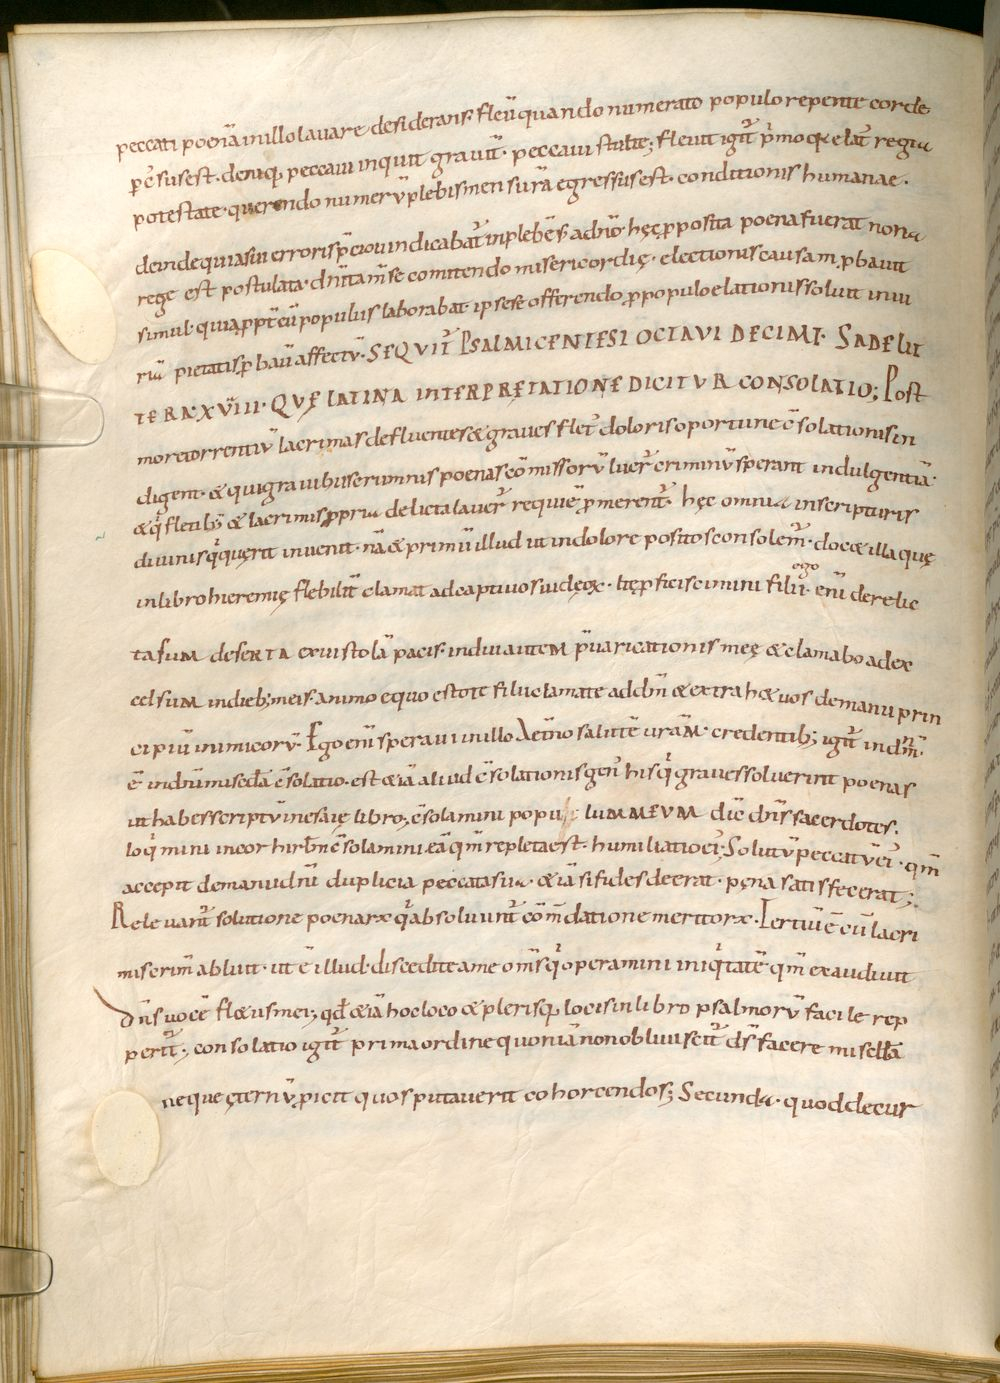 peccati poenā in illo lauare desiderans; fleū quando numerato populo repente corde
pc̄susest. deniq; peccaui inquit grauit̄. peccaui stulte; fleuit igit̄ p̄mo q elat̄ regia
potestate. querendo numerū plebis mensurā egressus est. conditionis humanae.
deinde quia sui erroris p̄ciou indicabat̄ in plebēs. ad n̄o. hęc p posita poena fuerat non a
rege est postulata. dn̄i tam̄ se comitendo misericordię. electionis causam pbauit
simul. quia ppt̄ eū populus laborabat. ipse se offerendo p populo elationis soluit iniu
riā pietatis pbauit affectū. SEQVIT̄ PSALMI CENTESI OCTAVI DECIMI. SADE LIT
TERA. XVIII. QVĘ LATINA INTERPRĘTATIONE DICITVR CONSOLATIO; Post
more torrentiū lacrimas defluentes & graues flet̄ doloris oportune c̄solationis in
digent. & qui grauibus erumnis poenas cōmissorū luer̄ criminū sperant indulgentiā.
& q̄ fletib; & lacrimis ppria delicta lauer̄ requiē pmerent̄. hęc omnia inscripturis
diuinis q̄ quęrit inuenit. nā & primū illud ut in dolore positos consolem̄. doc& illa quę
in libro hieremię flebilit̄ clamat ad captiuos iudęoꝝ. Hęc pficiscimini filii. ego en̄i derelic
ta sum deserta exui stolā pacis. indui autem p̄uaricationis meę & clamabo ad ex
celsum in dieb; meis. animo equo estote filii clamate ad dn̄m & extrah& uos de manu prin
cipiū inimicorū. Ego en̄i speraui in illo Aet̄no salutē urām. credentib; igit̄ in dn̄m.
ē in dn̄i miscd̄a c̄solatio. est & iā aliud c̄solationis gen̄ his q̄ graues soluerint poenas
ut habes scriptū in esaię libro; c̄solamini popu lum meum dic̄ dn̄s sacerdotes.
loq̄mini in cor hierlm̄ c̄solamini eā qm̄ repleta est. humiliatio ei; Solutū peccatū ei; qm̄
accepit de manu dn̄i duplicia peccata sua. & iā si fides deerat. pęna satisfecerat;
Releuant̄ solutione poenarꝝ q̄ absoluunt̄ cōmdatione meritorꝝ. Tertiū ē cū lacri
mis crim̄ abluit. ut ē illud. discedite a me om̄s q̄ operamini iniq̄tatē qm̄ exaudiuit
Dn̄s uocē flętus mei; qd̄ & iā hoc loco & plerisq; locis in libro psalmorū facile rep
perit̄; consolatio igit̄ prima ordine quoniā non obliuiscit̄ ds̄ facere misedā
neque ęternū picit quos putauerit cohorcendos; Secunda. quod decur